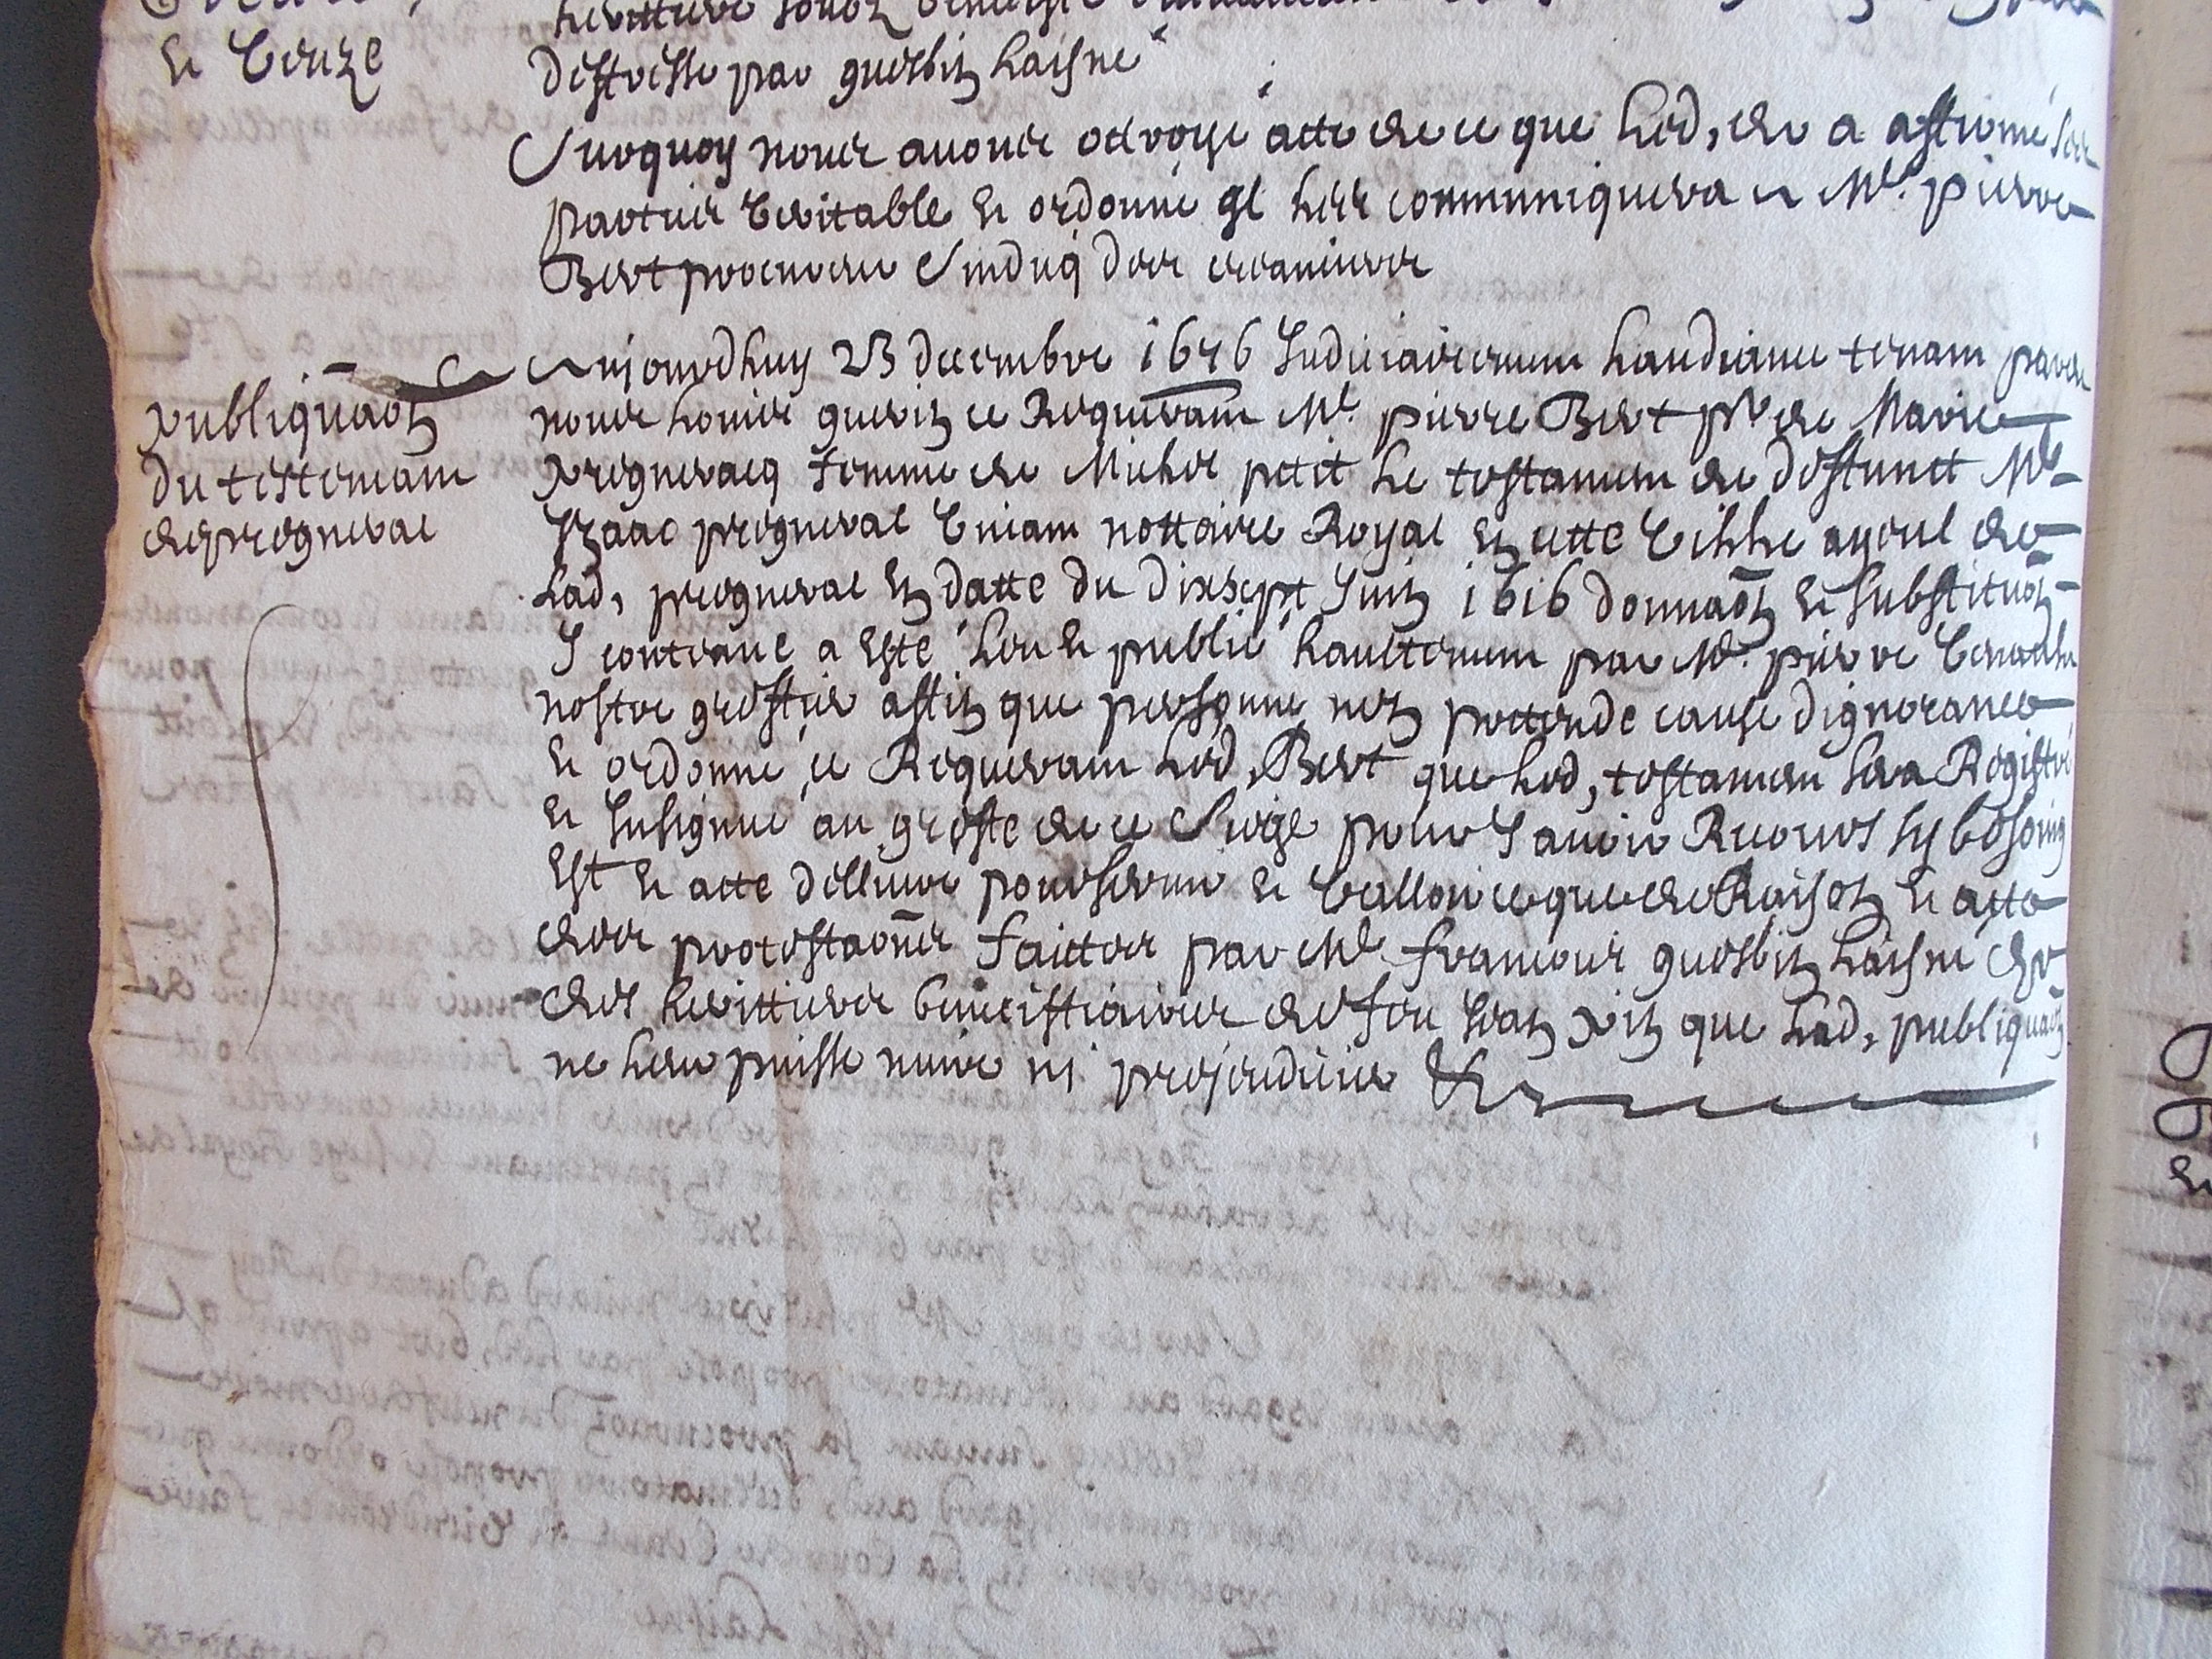 et Veuze
deffresse par guesbin laisne
Surquoy nous avons octroyé acte de ce que led, de a affirmé ses
parties veritable et ordonné ql les communiquera a Me pierre
Bert procureur sindicq des creanciers
publiquaon
du testemant
de pregnerac
Aujourdhuy 23 decembre 1646 Judiciairement laudiance tenant parde
nous louis guerin ce Requerant Me pierre Bert pr de Marie
Pregneracq femme de Micher petit le testament de deffunct Me
Izaac pregnerac vivant nottaire Royal en cette ville ayeul de
lad, pregnerac en datte du dixsept Juin 1616 donnaon et substituon
y contenue a esté leu et publié haultement par Me pierre
nostre greffier affin que personne nen pretende cause dignorance
et ordonné ce Requerant led, Bert que led, testament sera Registré
et Insignué au greffe de ce Siege pour y avoir Recours sy besoing
est et acte dellivré pour servir et valloir ce que de Raison et acte
des protestaones faittes par Me francois guesbin laisne pr
des herittiers beneciffiaires de feu que lad, publiquaon
ne leur puisse nuire ni prejeudicier &